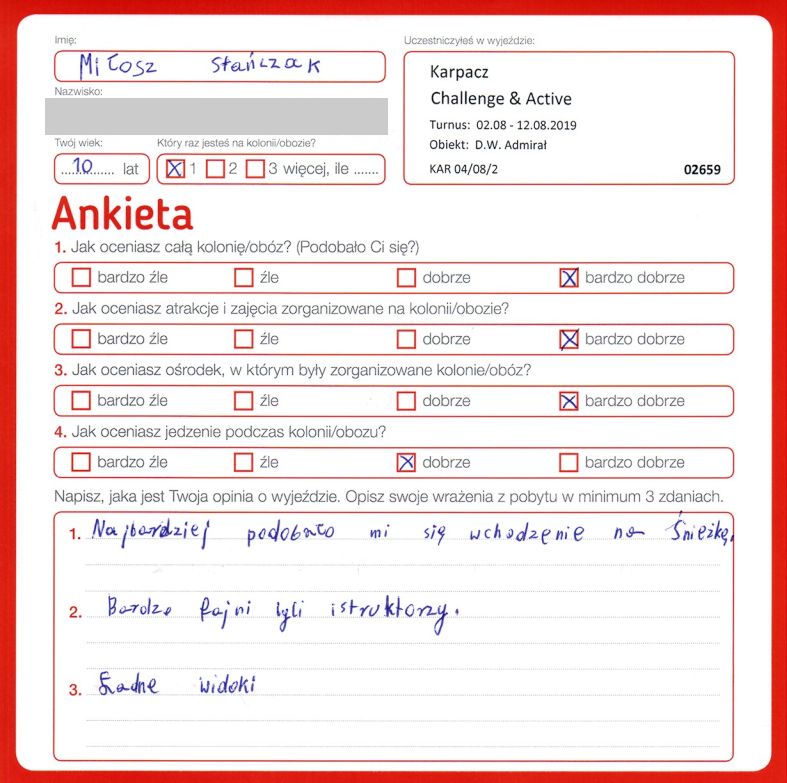 Imię:
Miłosz Stańczak
Nazwisko:
Twój wiek:
10 lat
Który raz jesteś na kolonii/obozie?
1 2 3 więcej, ile .......
Uczestniczyłeś w wyjeździe:
Karpacz
Challenge & Active
Turnus: 02.08 - 12.08.2019
Obiekt: D.W. Admirał
KAR 04/08/2 02659
Ankieta
1. Jak oceniasz całą kolonię/obóz? (Podobało Ci się?)
bardzo źle źle dobrze bardzo dobrze
2. Jak oceniasz atrakcje i zajęcia zorganizowane na kolonii/obozie?
bardzo źle źle dobrze bardzo dobrze
3. Jak oceniasz ośrodek, w którym były zorganizowane kolonie/obóz?
bardzo źle źle dobrze bardzo dobrze
4. Jak oceniasz jedzenie podczas kolonii/obozu?
bardzo źle źle dobrze bardzo dobrze
Napisz, jaka jest Twoja opinia o wyjeździe. Opisz swoje wrażenia z pobytu w minimum 3 zdaniach.
1. Najbardziej podobało mi się wchodzenie na Śnieżkę.
2. Bardzo fajni byli istruktorzy.
3. Ładne widoki